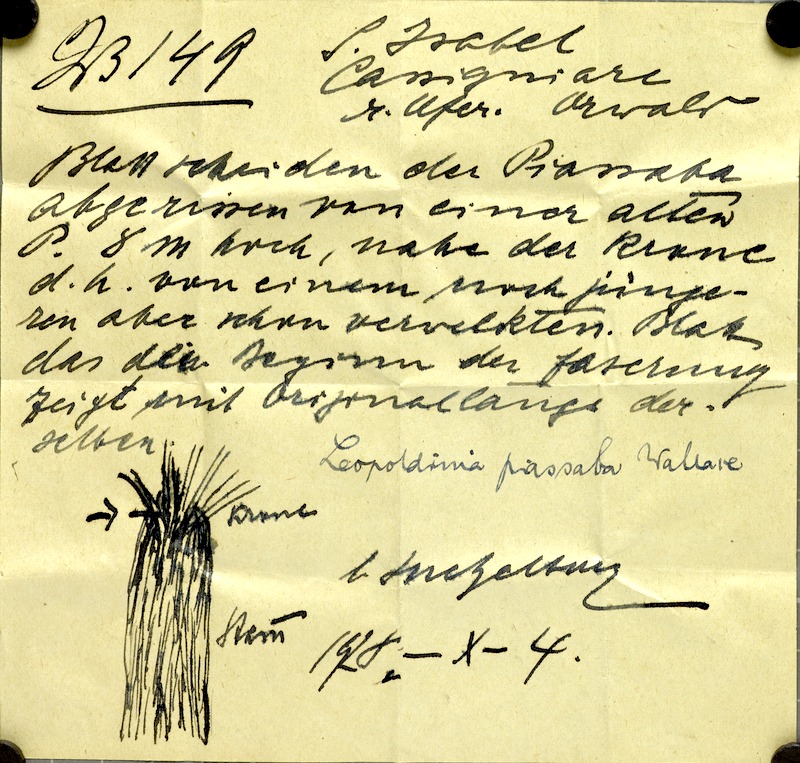 JB 149
S. Isabel
Cassiquiare
r. Ufer. Urwald
Blattscheiden der Piassaba
abgerissen von einer alten
P. 8 m hoch, nahe der Krone
d.h. von einem noch jünge-
ren aber schon verwelkten. Blatt
das den Beginn der Faserung
zeigt mit Originallänge der-
selben.
Leopoldinia piassaba Wallace
→ Krone
Luetzelburg
Stam̄
1928 — X — 4.